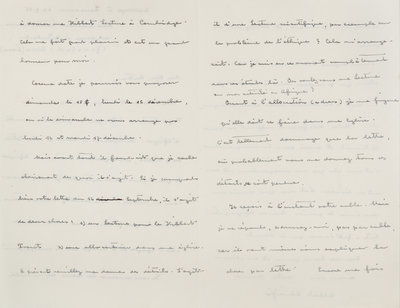 à donner une Hibbert Lecture à Cambridge.
Cela me fait grand plaisir et est un grand
honneur pour moi.
Comme date je pourrais vous proposer
dimanche le 15, lundi le 16 décembre,
ou si le dimanche ne vous arrange pas
lundi 16 et mardi 17 décembre.
Mais avant tout il faudrait que je sache
clairement de quoi il s'agit. Si je comprends
bien votre lettre du September, il s'agit
de deux choses: 1) une lecture pour le Hibbert
Trust 2) une allocution dans une église.
À présent veuillez me donner des détails. S'agit-
il d'une lecture scientifique, par exemple sur
le problème de l'éthique? Cela m'arrange-
rait. Car je suis en ce moment complètement
dans ces études là. Ou voulez-vous une lecture
sur mon activité en Afrique?
Quant à l'allocution (address) je me figure
qu'elle doit se faire dans une église.
C'est tellement dommage que la lettre,
où probablement vous me donniez tous ces
détails se soit perdue.
Je reçois à l'instant votre cable. Mais
je ne réponds, pardonnez-moi, pas par cable,
car il vaut mieux vous expliquer la
chose par lettre. Encore une fois